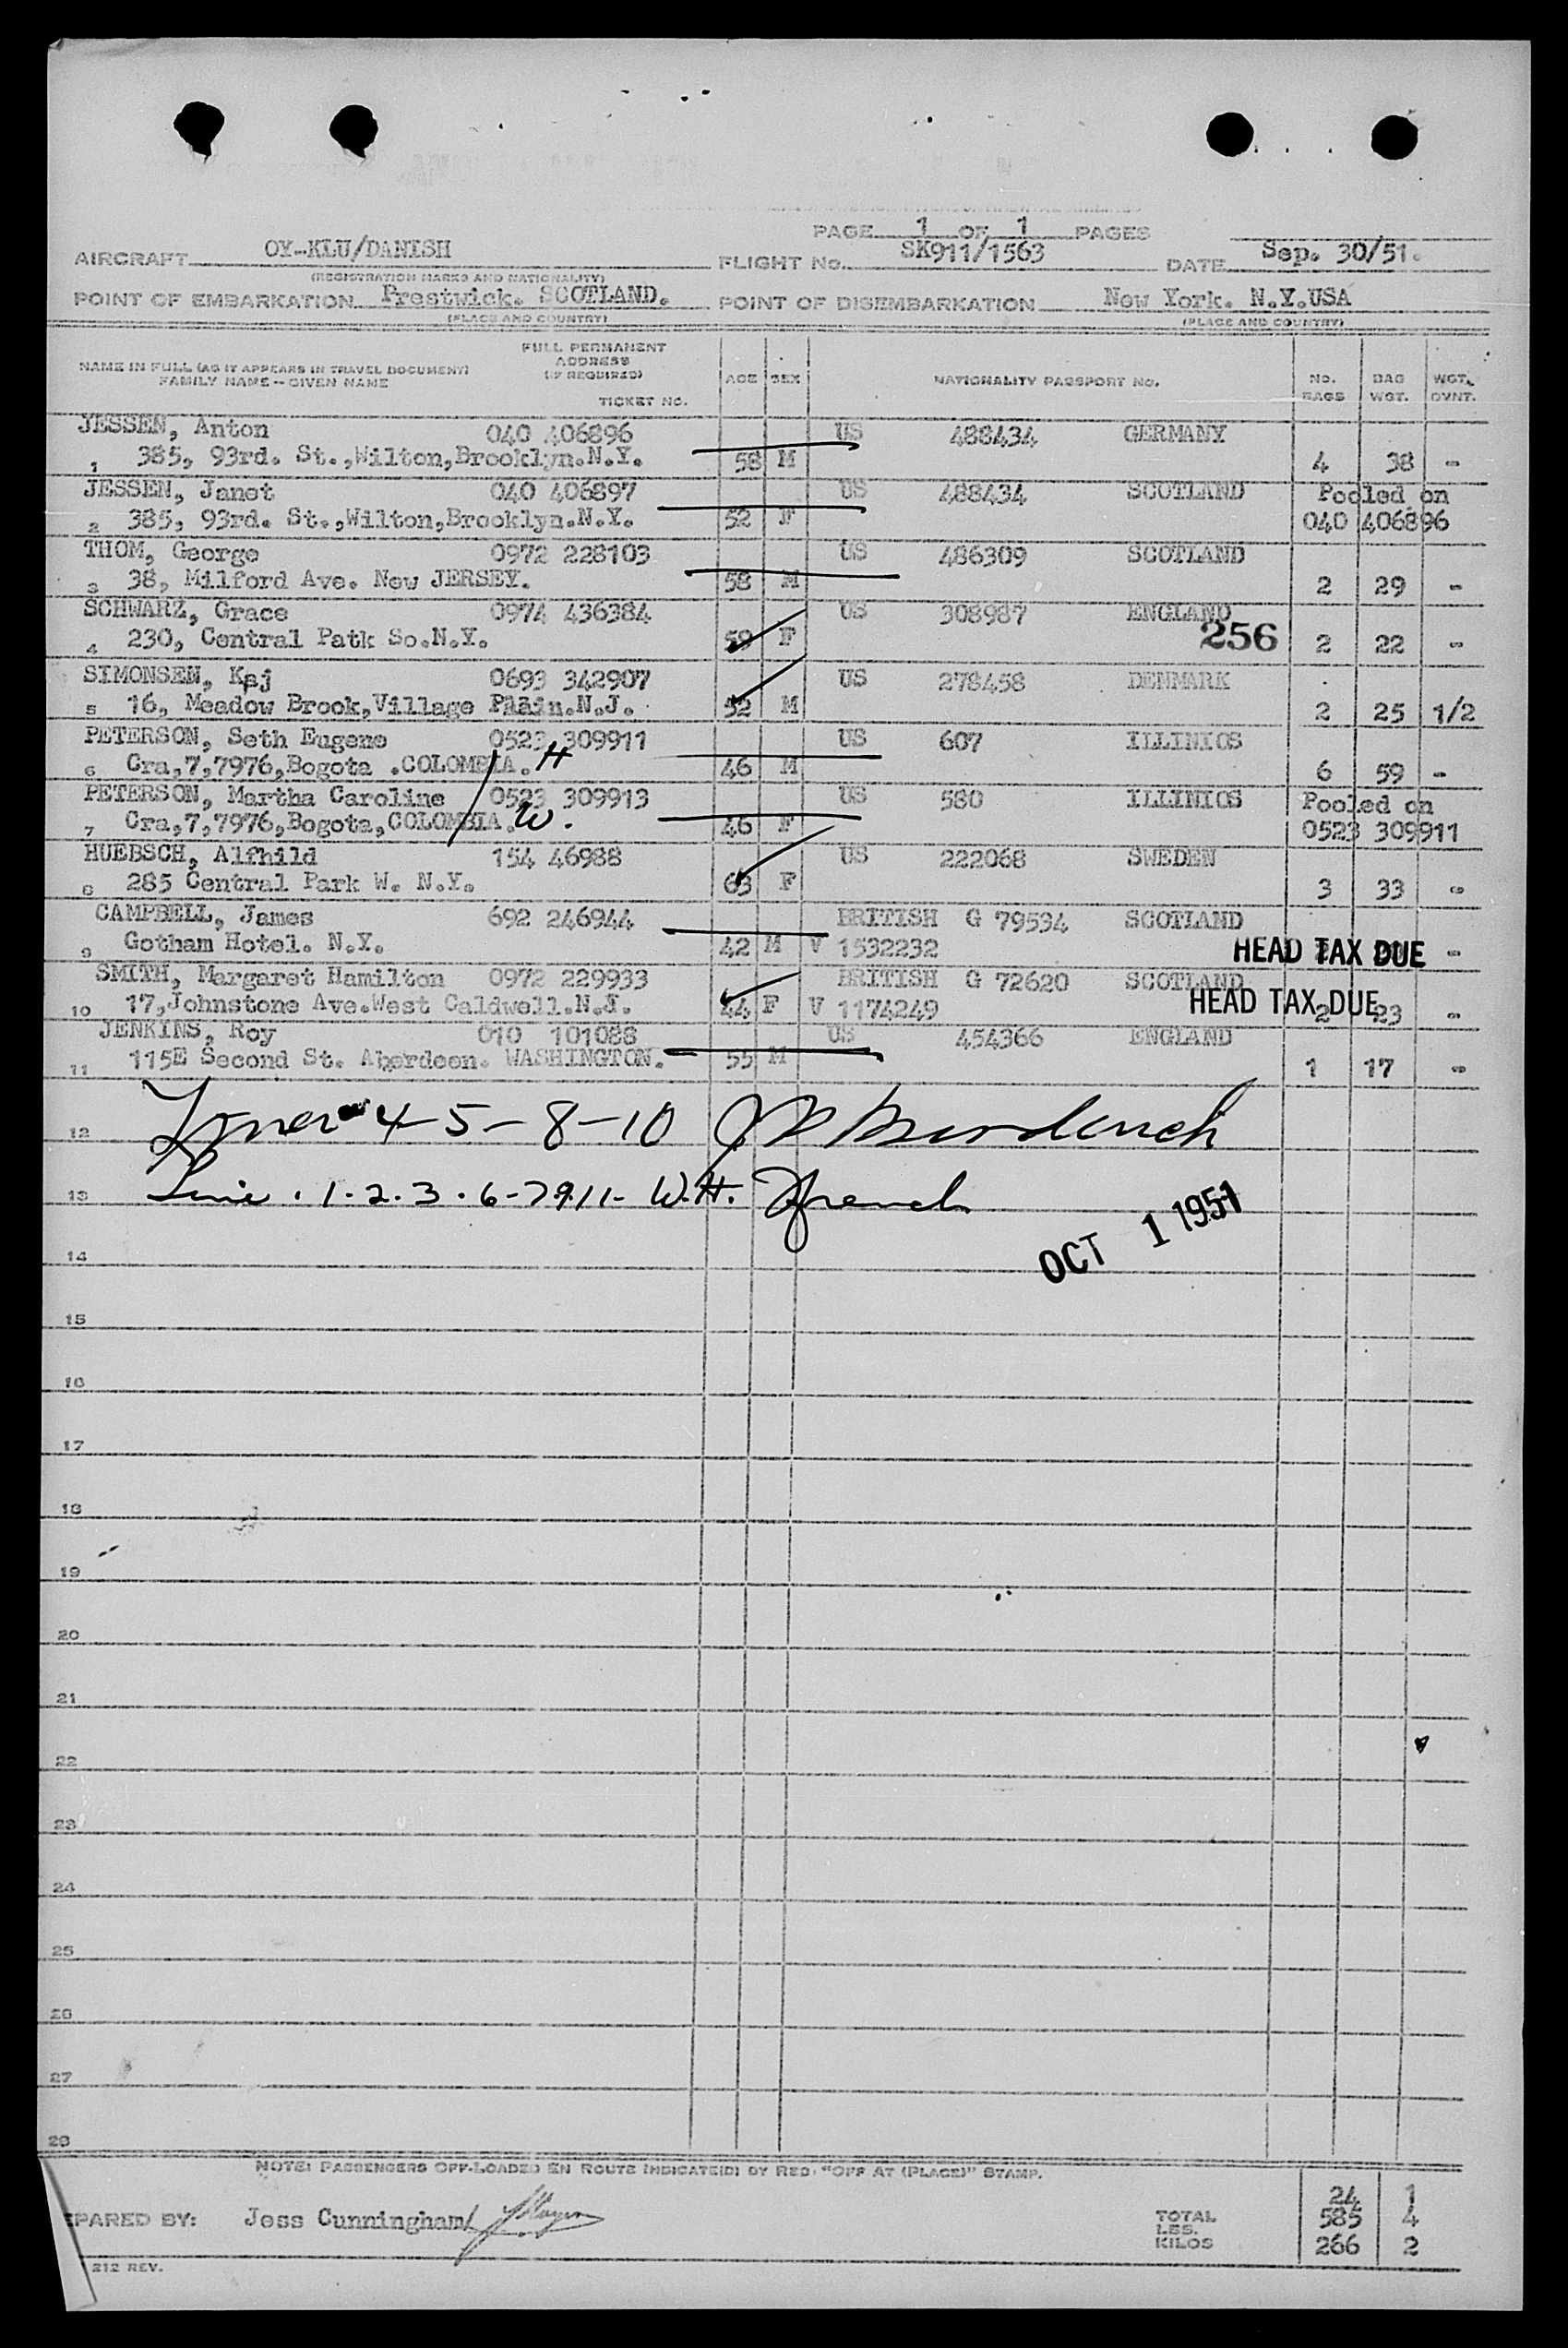 PAGE 1 OF 1 PAGES
AIRCRAFT OY-KLU/DANISH FLIGHT No. SK911/1563 DATE Sep. 30/51.
(REGISTRATION MARKS AND NATIONALITY)
POINT OF EMBARKATION Prestwick. SCOTLAND. POINT OF DISEMBARKATION New York. N.Y.USA
(PLACE AND COUNTRY) (PLACE AND COUNTRY)
NAME IN FULL (AS IT APPEARS IN TRAVEL DOCUMENT) FAMILY NAME – GIVEN NAME FULL PERMANENT ADDRESS (IF REQUIRED) TICKET NO. AGE SEX NATIONALITY PASSPORT No. NO. BAGS BAG WGT. WGT. OVNT.
JESSEN, Anton 040 406896 US 488434 GERMANY
1 385, 93rd. St.,Wilton,Brooklyn.N.Y. 58 M 4 38 -
JESSEN, Janet 040 406897 US 488434 SCOTLAND Pooled on
2 385, 93rd. St.,Wilton,Brooklyn.N.Y. 52 F 040 406896
THOM, George 0972 228103 US 486309 SCOTLAND
3 38, Milford Ave. New JERSEY. 58 M 2 29 -
SCHWARZ, Grace 0974 436384 US 308987 ENGLAND
4 230, Central Patk So.N.Y. 59 F 256 2 22 -
SIMONSEN, Kaj 0693 342907 US 278458 DENMARK
5 16, Meadow Brook,Village Plain.N.J. 52 M 2 25 1/2
PETERSON, Seth Eugene 0523 309911 US 607 ILLINIOS
6 Cra,7,7976,Bogota .COLOMBIA. H 46 M 6 59 -
PETERSON, Martha Caroline 0523 309913 US 580 ILLINIOS Pooled on
7 Cra,7,7976,Bogota,COLOMBIA. W. 46 F 0523 309911
HUEBSCH, Alfhild 154 46988 US 222068 SWEDEN
8 285 Central Park W. N.Y. 63 F 3 33 -
CAMPBELL, James 692 246944 BRITISH G 79534 SCOTLAND
9 Gotham Hotel. N.Y. 42 M V 1532232 HEAD TAX DUE -
SMITH, Margaret Hamilton 0972 229933 BRITISH G 72620 SCOTLAND
10 17,Johnstone Ave.West Caldwell.N.J. 44 F V 1174249 HEAD TAX DUE 2 23 -
JENKINS, Roy 010 101088 US 454366 ENGLAND
11 115E Second St. Aberdeen. WASHINGTON. 55 M 1 17 -
12 4-5-8-10
13 Line . 1.2.3.6-7911- W.H. French
OCT 1 1951
14
15
16
17
18
19
20
21
22
23
24
25
26
27
28
NOTE: PASSENGERS OFF-LOADED EN ROUTE INDICATE(D) BY RED "OFF AT (PLACE)" STAMP.
24 1
EPARED BY: Jess Cunningham/ TOTAL LBS. 585 4
KILOS 266 2
212 REV.